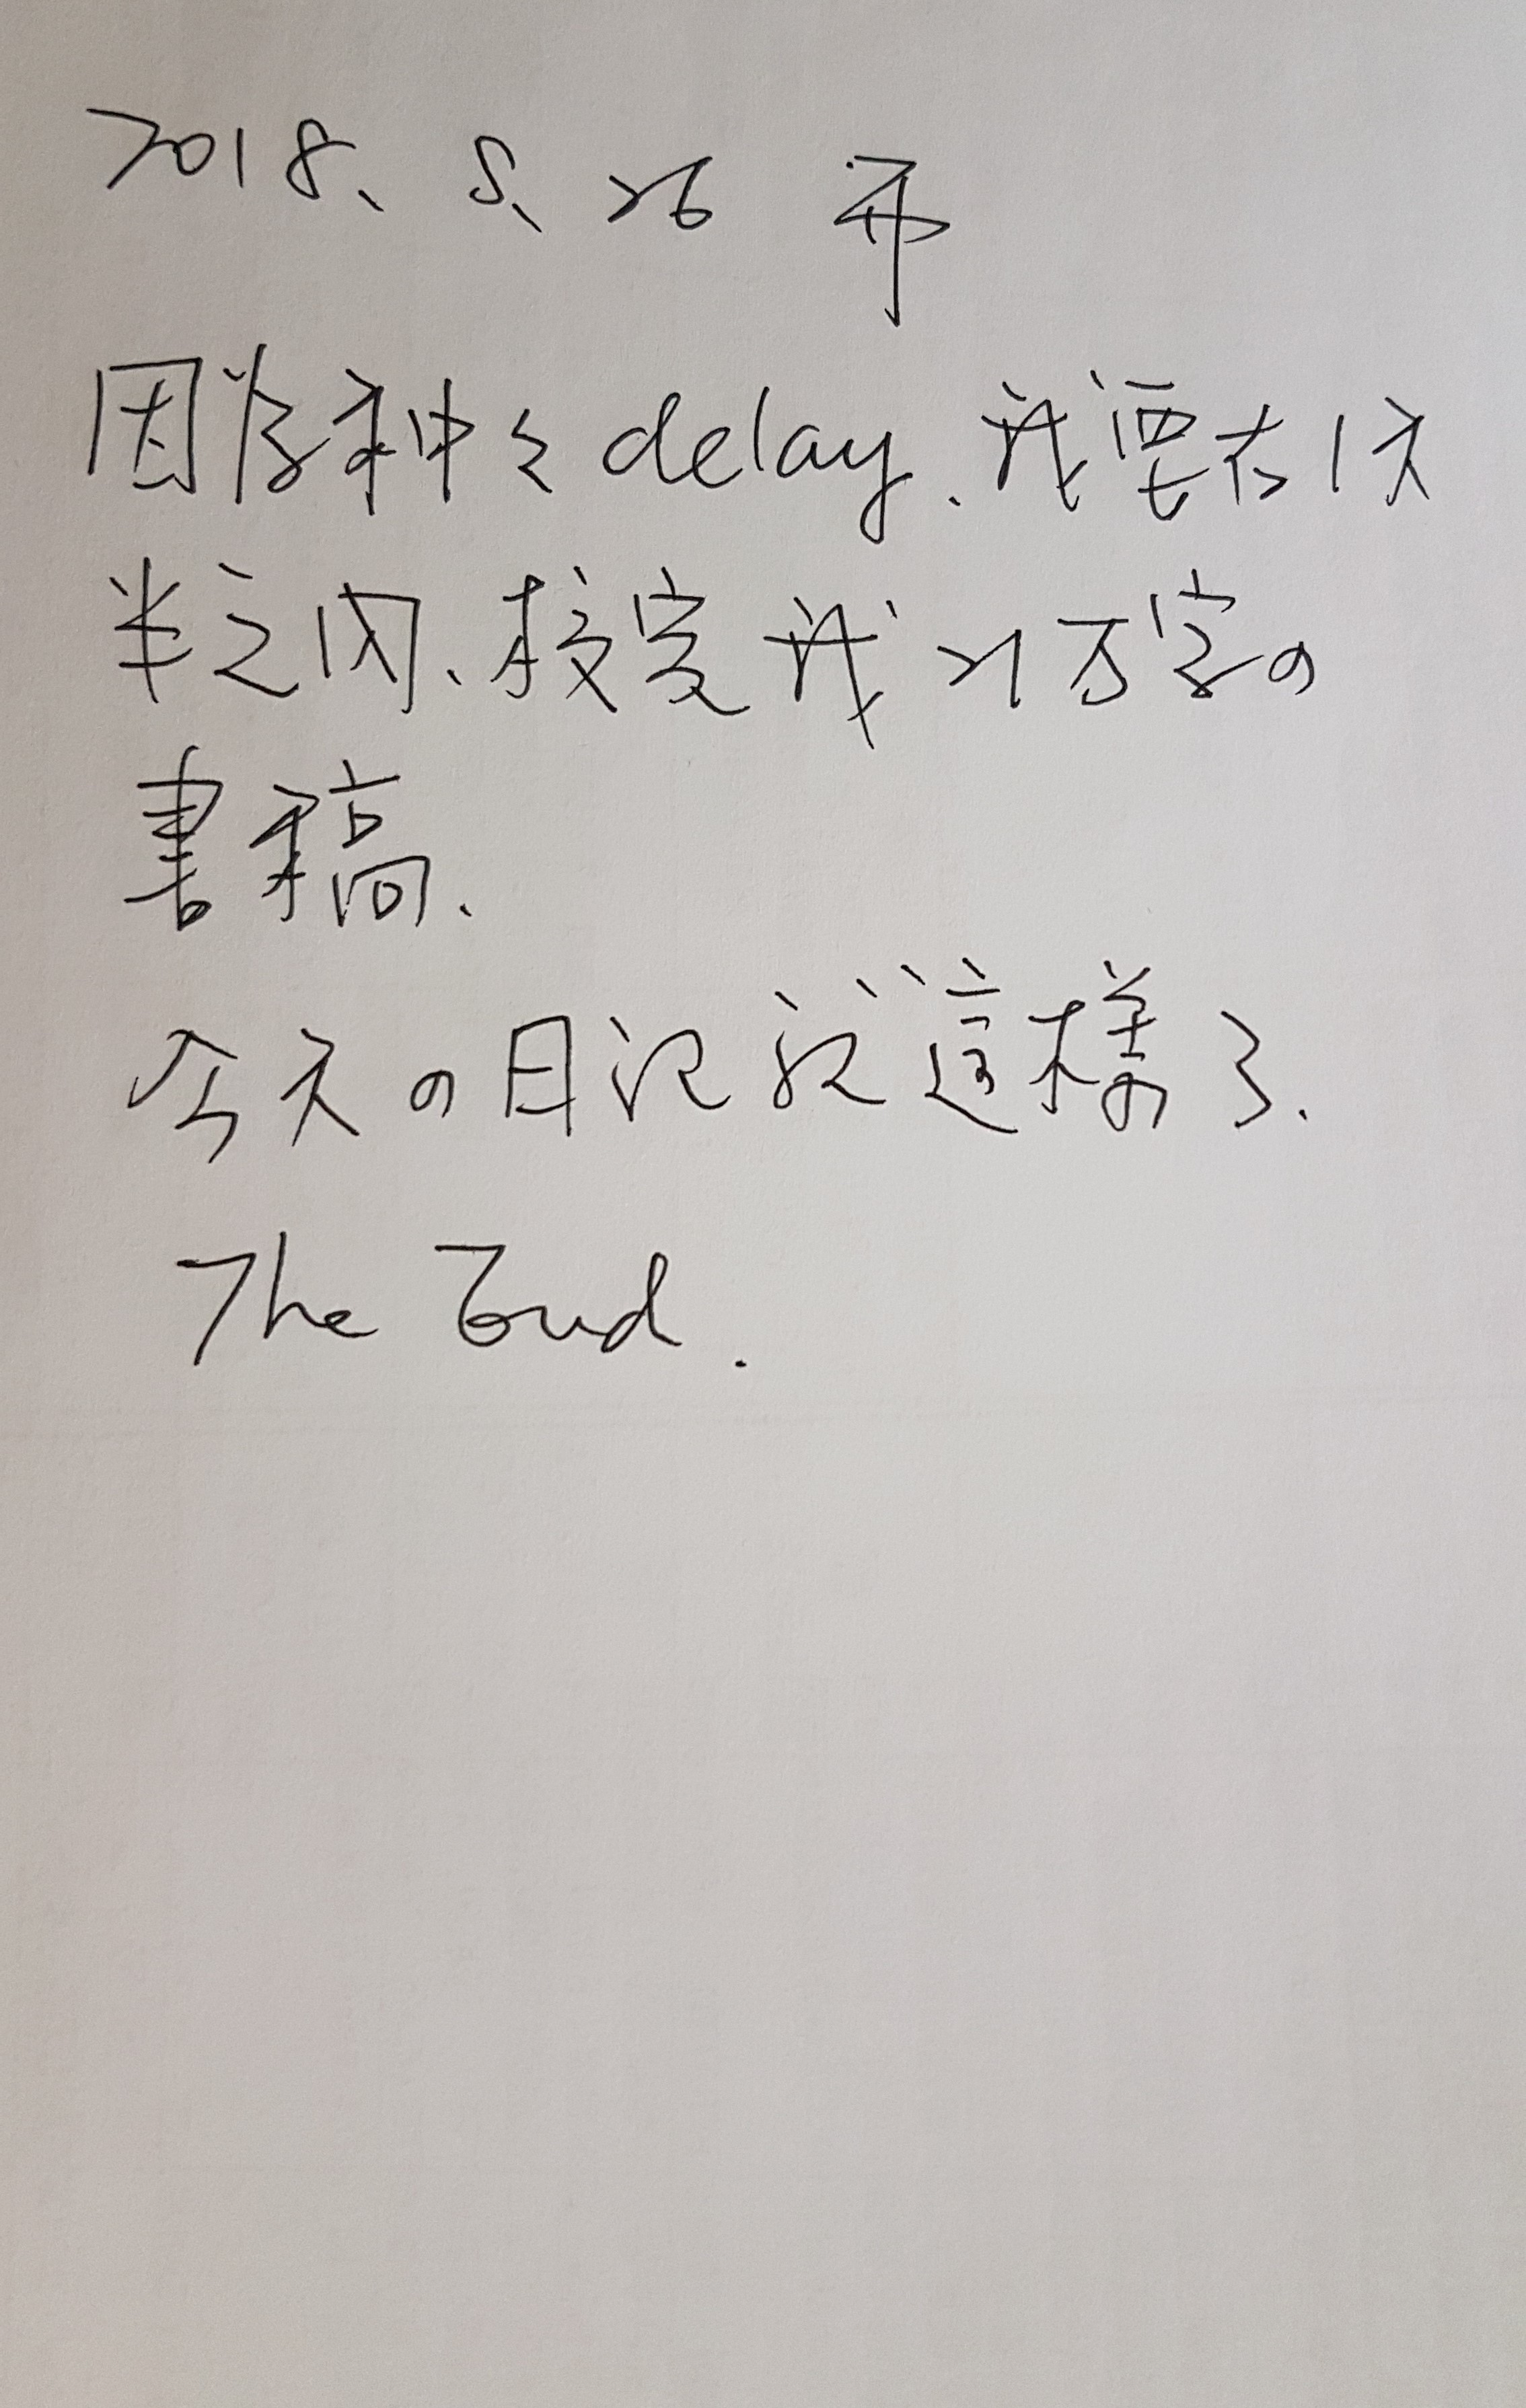 2018、5、26
因為種々delay、我要在1天
半之內、校完我21万字の
書稿、
今天の日記就這樣了、
The End.